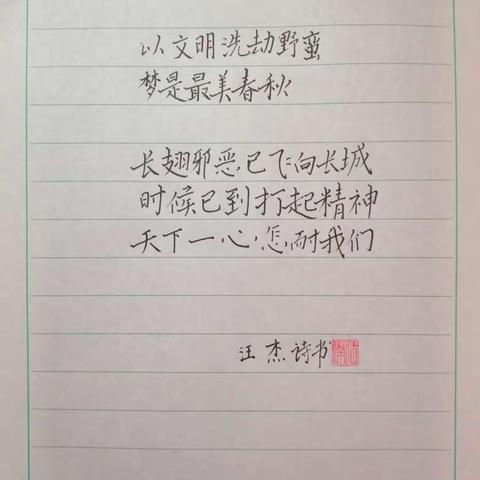 以文明洗劫野蛮
梦是最美春秋
长翅邪恶已飞向长城
时候已到打起精神
天下一心,怎耐我们
汪杰诗书